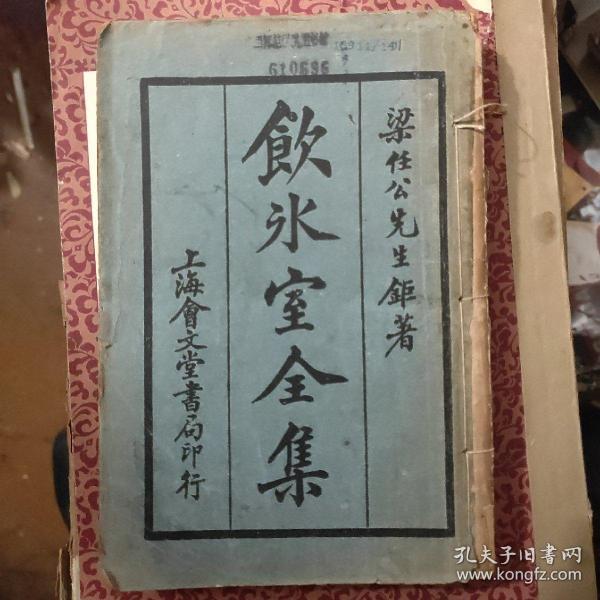 610696
梁任公先生鉅著
飲冰室全集
上海會文堂書局印行
孔夫子旧书网
www.kongfz.com